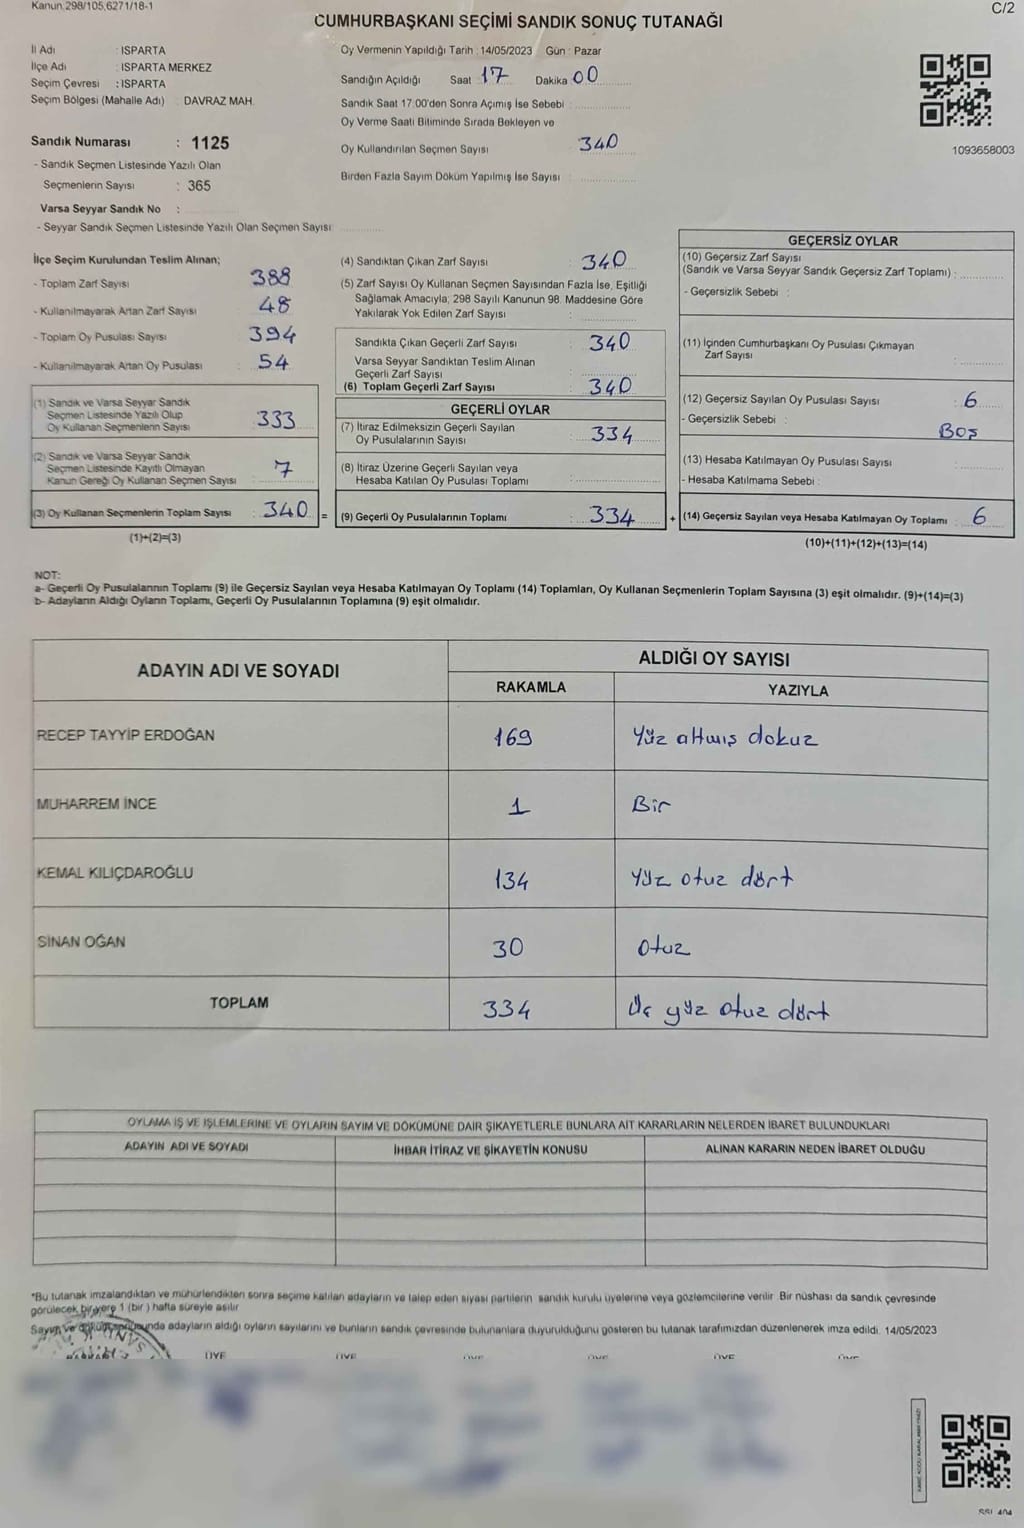 Kanun.298/105,6271/18-1
C/2
CUMHURBAŞKANI SEÇİMİ SANDIK SONUÇ TUTANAĞI
İl Adı : ISPARTA
İlçe Adı : ISPARTA MERKEZ
Seçim Çevresi : ISPARTA
Seçim Bölgesi (Mahalle Adı) : DAVRAZ MAH.
Oy Vermenin Yapıldığı Tarih : 14/05/2023 Gün : Pazar
Sandığın Açıldığı Saat 17 Dakika 00
Sandık Saat 17:00'den Sonra Açımış İse Sebebi :
Oy Verme Saati Bitiminde Sırada Bekleyen ve
Oy Kullandırılan Seçmen Sayısı 340
Birden Fazla Sayım Döküm Yapılmış İse Sayısı :
1093658003
Sandık Numarası : 1125
- Sandık Seçmen Listesinde Yazılı Olan
Seçmenlerin Sayısı : 365
Varsa Seyyar Sandık No :
- Seyyar Sandık Seçmen Listesinde Yazılı Olan Seçmen Sayısı:
İlçe Seçim Kurulundan Teslim Alınan;
- Toplam Zarf Sayısı : 388
- Kullanılmayarak Artan Zarf Sayısı : 48
- Toplam Oy Pusulası Sayısı : 394
- Kullanılmayarak Artan Oy Pusulası : 54
(1) Sandık ve Varsa Seyyar Sandık
Seçmen Listesinde Yazılı Olup
Oy Kullanan Seçmenlerin Sayısı : 333
(2) Sandık ve Varsa Seyyar Sandık
Seçmen Listesinde Kayıtlı Olmayan
Kanun Gereği Oy Kullanan Seçmen Sayısı : 7
(3) Oy Kullanan Seçmenlerin Toplam Sayısı : 340 =
(1)+(2)=(3)
(4) Sandıktan Çıkan Zarf Sayısı : 340
(5) Zarf Sayısı Oy Kullanan Seçmen Sayısından Fazla İse, Eşitliği
Sağlamak Amacıyla; 298 Sayılı Kanunun 98. Maddesine Göre
Yakılarak Yok Edilen Zarf Sayısı :
Sandıkta Çıkan Geçerli Zarf Sayısı : 340
Varsa Seyyar Sandıktan Teslim Alınan
Geçerli Zarf Sayısı :
(6) Toplam Geçerli Zarf Sayısı : 340
GEÇERLİ OYLAR
(7) İtiraz Edilmeksizin Geçerli Sayılan
Oy Pusulalarının Sayısı : 334
(8) İtiraz Üzerine Geçerli Sayılan veya
Hesaba Katılan Oy Pusulası Toplamı :
(9) Geçerli Oy Pusulalarının Toplamı : 334 +
GEÇERSİZ OYLAR
(10) Geçersiz Zarf Sayısı
(Sandık ve Varsa Seyyar Sandık Geçersiz Zarf Toplamı) :
- Geçersizlik Sebebi :
(11) İçinden Cumhurbaşkanı Oy Pusulası Çıkmayan
Zarf Sayısı :
(12) Geçersiz Sayılan Oy Pusulası Sayısı : 6
- Geçersizlik Sebebi : Boş
(13) Hesaba Katılmayan Oy Pusulası Sayısı :
- Hesaba Katılmama Sebebi :
(14) Geçersiz Sayılan veya Hesaba Katılmayan Oy Toplamı : 6
(10)+(11)+(12)+(13)=(14)
NOT:
a- Geçerli Oy Pusulalarının Toplamı (9) ile Geçersiz Sayılan veya Hesaba Katılmayan Oy Toplamı (14) Toplamları, Oy Kullanan Seçmenlerin Toplam Sayısına (3) eşit olmalıdır. (9)+(14)=(3)
b- Adayların Aldığı Oyların Toplamı, Geçerli Oy Pusulalarının Toplamına (9) eşit olmalıdır.
ADAYIN ADI VE SOYADI ALDIĞI OY SAYISI
RAKAMLA YAZIYLA
RECEP TAYYİP ERDOĞAN 169 Yüz altmış dokuz
MUHARREM İNCE 1 Bir
KEMAL KILIÇDAROĞLU 134 Yüz otuz dört
SİNAN OĞAN 30 otuz
TOPLAM 334 Üç yüz otuz dört
OYLAMA İŞ VE İŞLEMLERİNE VE OYLARIN SAYIM VE DÖKÜMÜNE DAİR ŞİKAYETLERLE BUNLARA AİT KARARLARIN NELERDEN İBARET BULUNDUKLARI
ADAYIN ADI VE SOYADI İHBAR İTİRAZ VE ŞİKAYETİN KONUSU ALINAN KARARIN NEDEN İBARET OLDUĞU
*Bu tutanak imzalandıktan ve mühürlendikten sonra seçime katılan adayların ve talep eden siyasi partilerin sandık kurulu üyelerine veya gözlemcilerine verilir. Bir nüshası da sandık çevresinde
görülecek bir yere 1 (bir) hafta süreyle asılır.
Sayım ve döküm sonunda adayların aldığı oyların sayılarını ve bunların sandık çevresinde bulunanlara duyurulduğunu gösteren bu tutanak tarafımızdan düzenlenerek imza edildi. 14/05/2023
ÜYE ÜYE ÜYE ÜYE ÜYE ÜYE